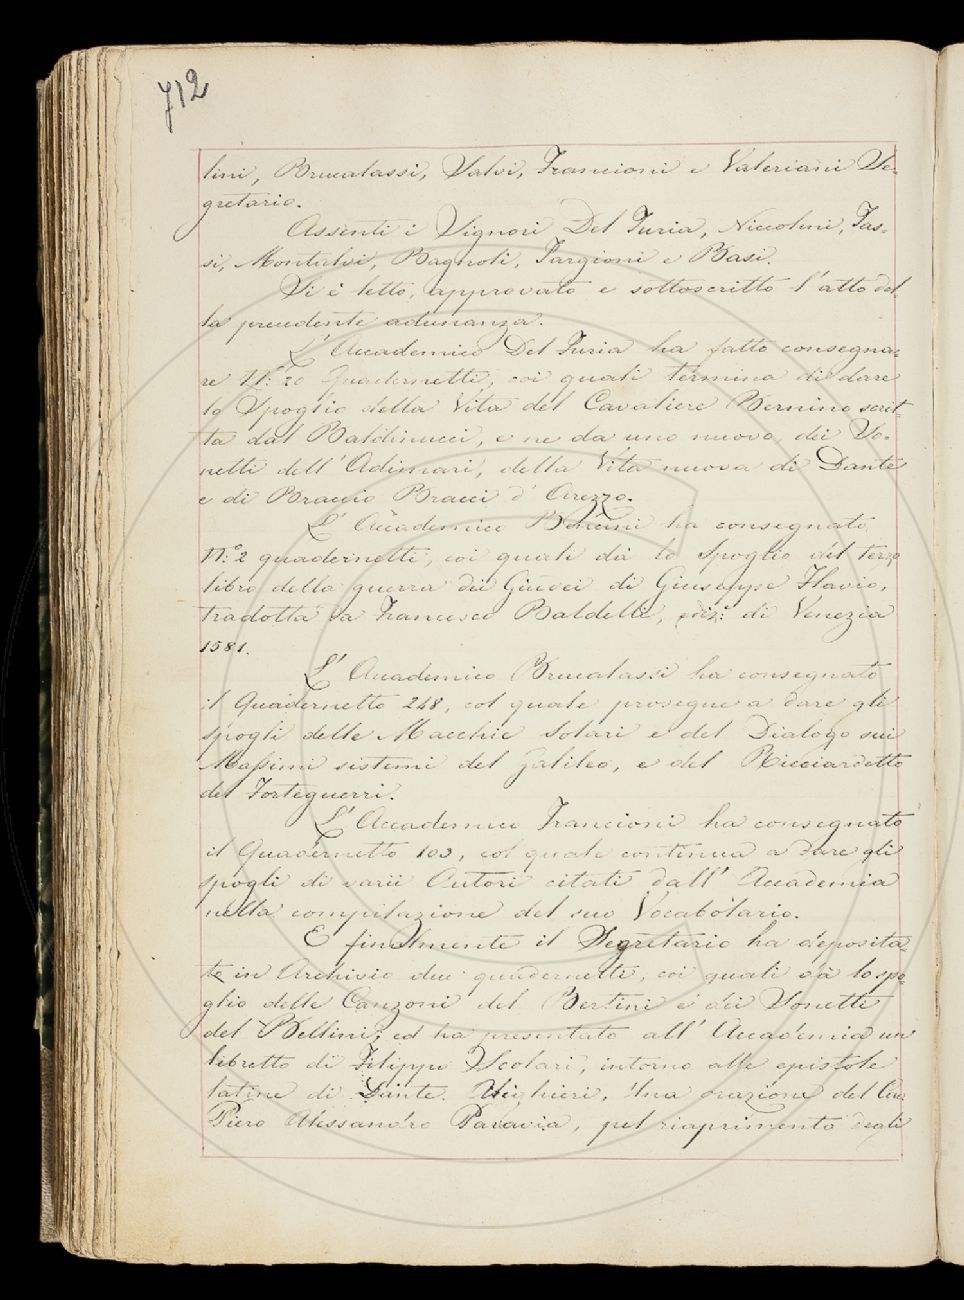 712
lini, Brucalassi, Salvi, Francioni e Valeriani Se-
gretario.
Assenti i Signori Del Furia, Niccolini, Tas-
si, Montalvi, Bagnoli, Targioni e Basi.
Si è letto, approvato e sottoscritto l'atto del-
la precedente adunanza.
L'Accademico Del Furia ha fatto consegna-
re N.º 20 Quadernetti, coi quali termina di dare
lo Spoglio della Vita del Cavaliere Bernino scrit-
ta dal Baldinucci, e ne da uno nuovo dei So-
netti dell'Adimari, della Vita nuova di Dante
e di Braccio Bracci d'Arezzo.
L'Accademico Bencini ha consegnato
N.º 2 quadernetti, coi quali dà lo Spoglio del terzo
libro della guerra dei Giudei di Giuseppe Flavio,
tradotta da Francesco Baldelli, ediz: di Venezia
1581.
L'Accademico Brucalassi ha consegnato
il Quadernetto 248, col quale prosegue a dare gli
spogli delle Macchie Solari e del Dialogo sui
Massimi sistemi del Galileo, e del Ricciardetto
del Forteguerri.
L'Accademico Francioni ha consegnato
il Quadernetto 103, col quale continua a dare gli
spogli di varii Autori citati dall'Accademia
nella compilazione del suo Vocabolario.
E finalmente il Segretario ha deposita-
te in Archivio due quadernetti, coi quali dà lo spo-
glio delle Canzoni del Bertini e dei Sonetti
del Bellini; ed ha presentato all'Accademia un
libretto di Filippo Scolari, intorno alle epistole
latine di Dante Alighieri, Una orazione del Cav.
Piero Alessandro Paravia, pel riaprimento degli